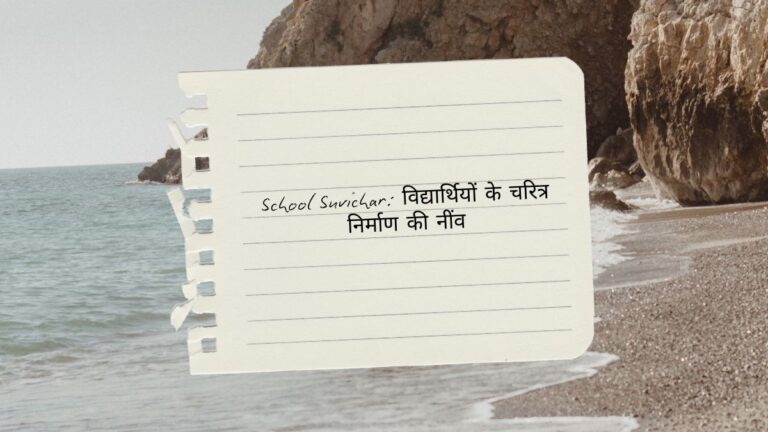 School Suvichar: विद्यार्थियों के चरित्र
निर्माण की नींव